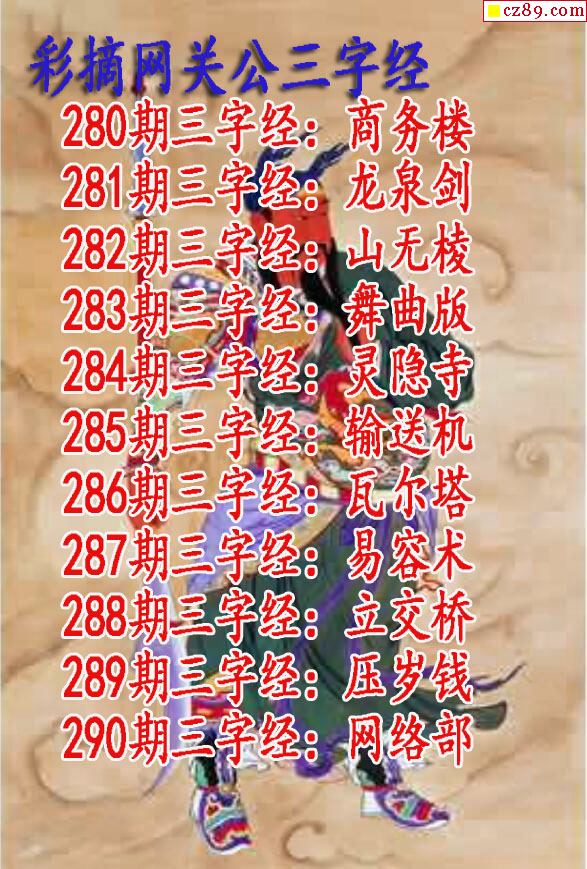 cz89.com
彩摘网关公三字经
280期三字经：商务楼
281期三字经：龙泉剑
282期三字经：山无棱
283期三字经：舞曲版
284期三字经：灵隐寺
285期三字经：输送机
286期三字经：瓦尔塔
287期三字经：易容术
288期三字经：立交桥
289期三字经：压岁钱
290期三字经：网络部